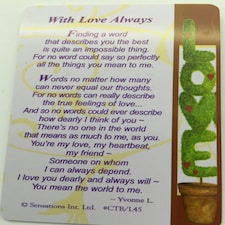 With Love Always
Finding a word
that describes you the best
is quite an impossible thing.
For no word could say so perfectly
all the things you mean to me.
Words no matter how many
can never equal our thoughts.
For no words can really describe
the true feelings of love...
And so no words could ever describe
how dearly I think of you ~
There's no one in the world
that means as much to me, as you.
You're my love, my heartbeat,
my friend ~
Someone on whom
I can always depend.
I love you dearly and always ~
You mean the world to me.
~ Yvonne L.
© Sensations Inc. Ltd. #CTB/L45